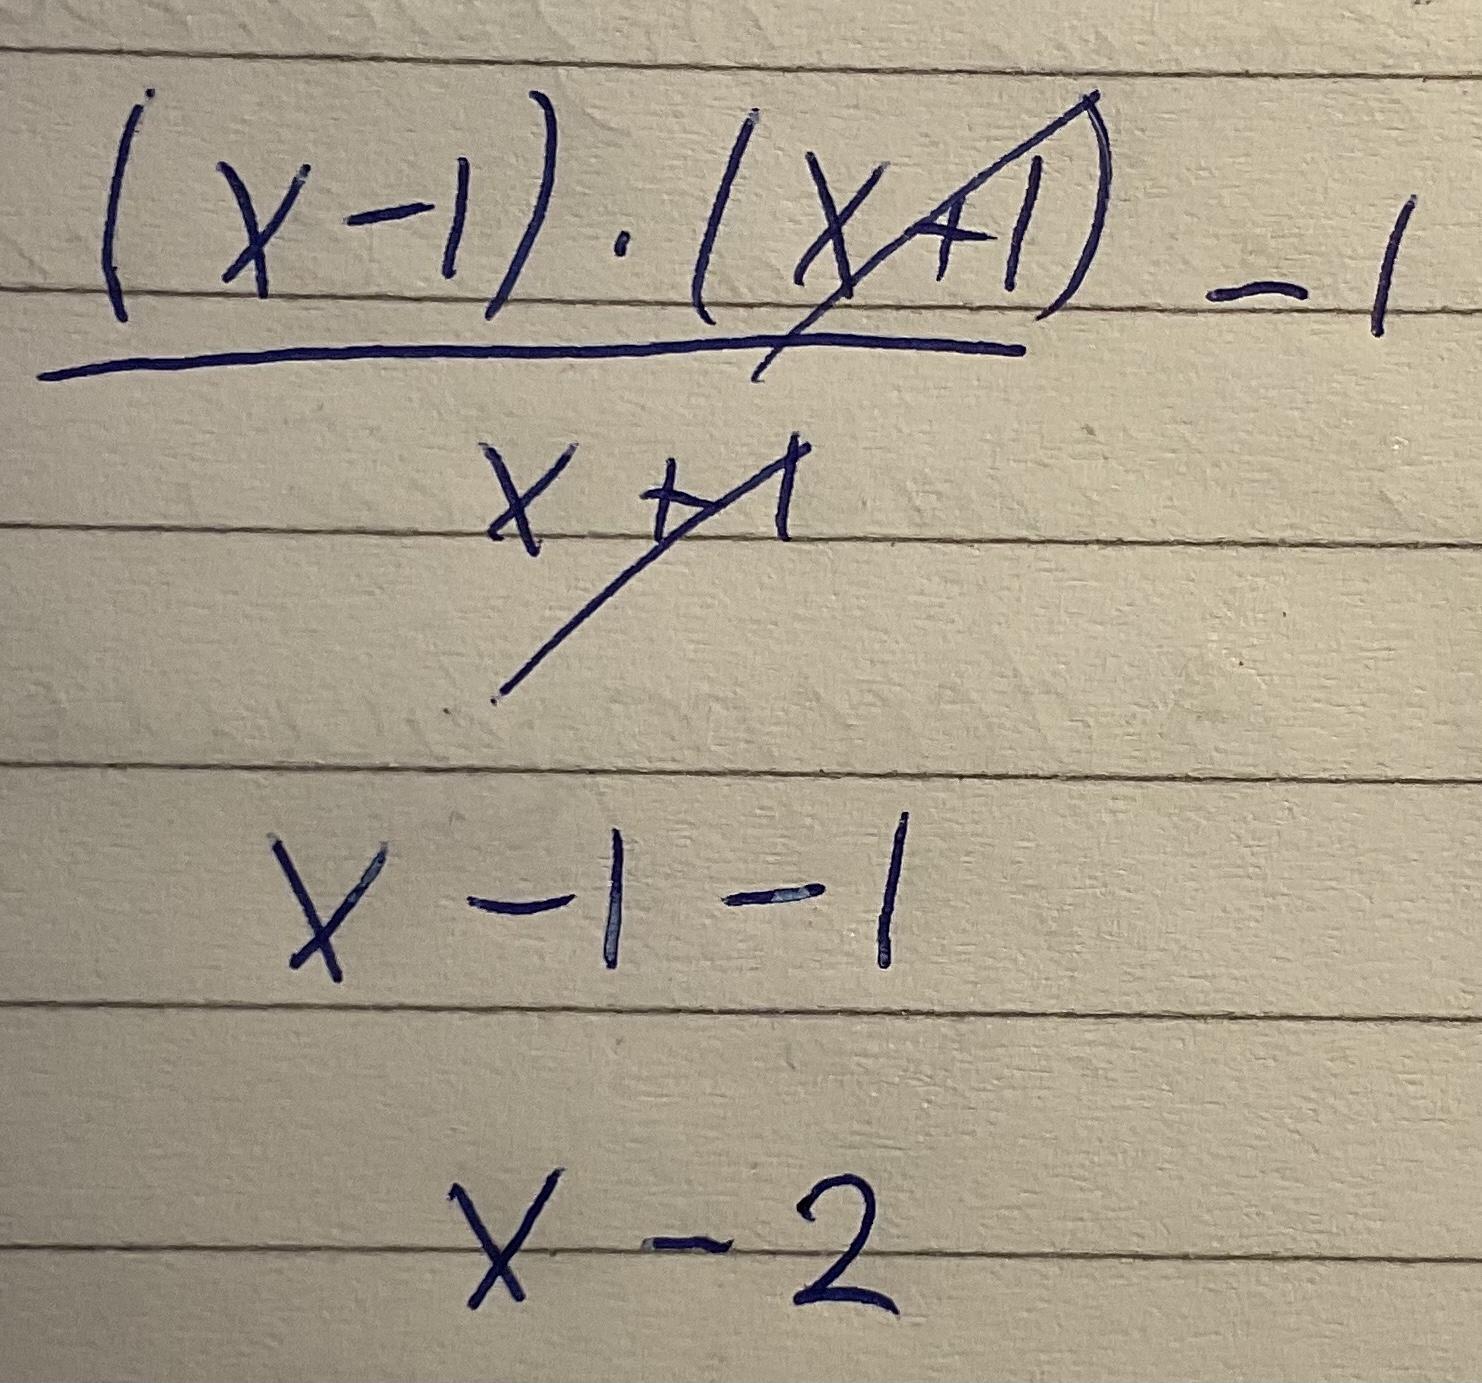 (x-1)·(x+1) - 1
x + 1
x - 1 - 1
x - 2